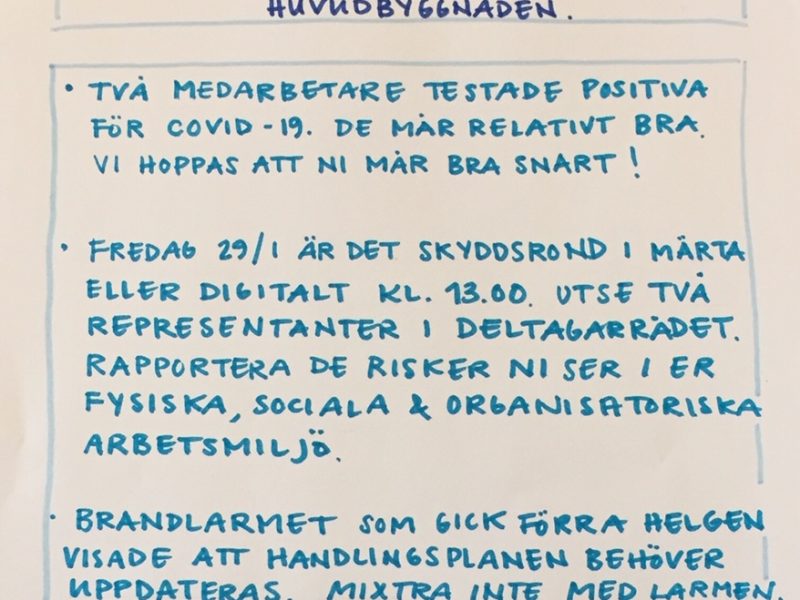 HUVUDBYGGNADEN.
• TVÅ MEDARBETARE TESTADE POSITIVA
FÖR COVID-19. DE MÅR RELATIVT BRA.
VI HOPPAS ATT NI MÅR BRA SNART!
• FREDAG 29/1 ÄR DET SKYDDSROND I MÄRTA
ELLER DIGITALT KL. 13.00. UTSE TVÅ
REPRESENTANTER I DELTAGARRÅDET.
RAPPORTERA DE RISKER NI SER I ER
FYSISKA, SOCIALA & ORGANISATORISKA
ARBETSMILJÖ.
• BRANDLARMET SOM GICK FÖRRA HELGEN
VISADE ATT HANDLINGSPLANEN BEHÖVER
UPPDATERAS. MIXTRA INTE MED LARMEN.